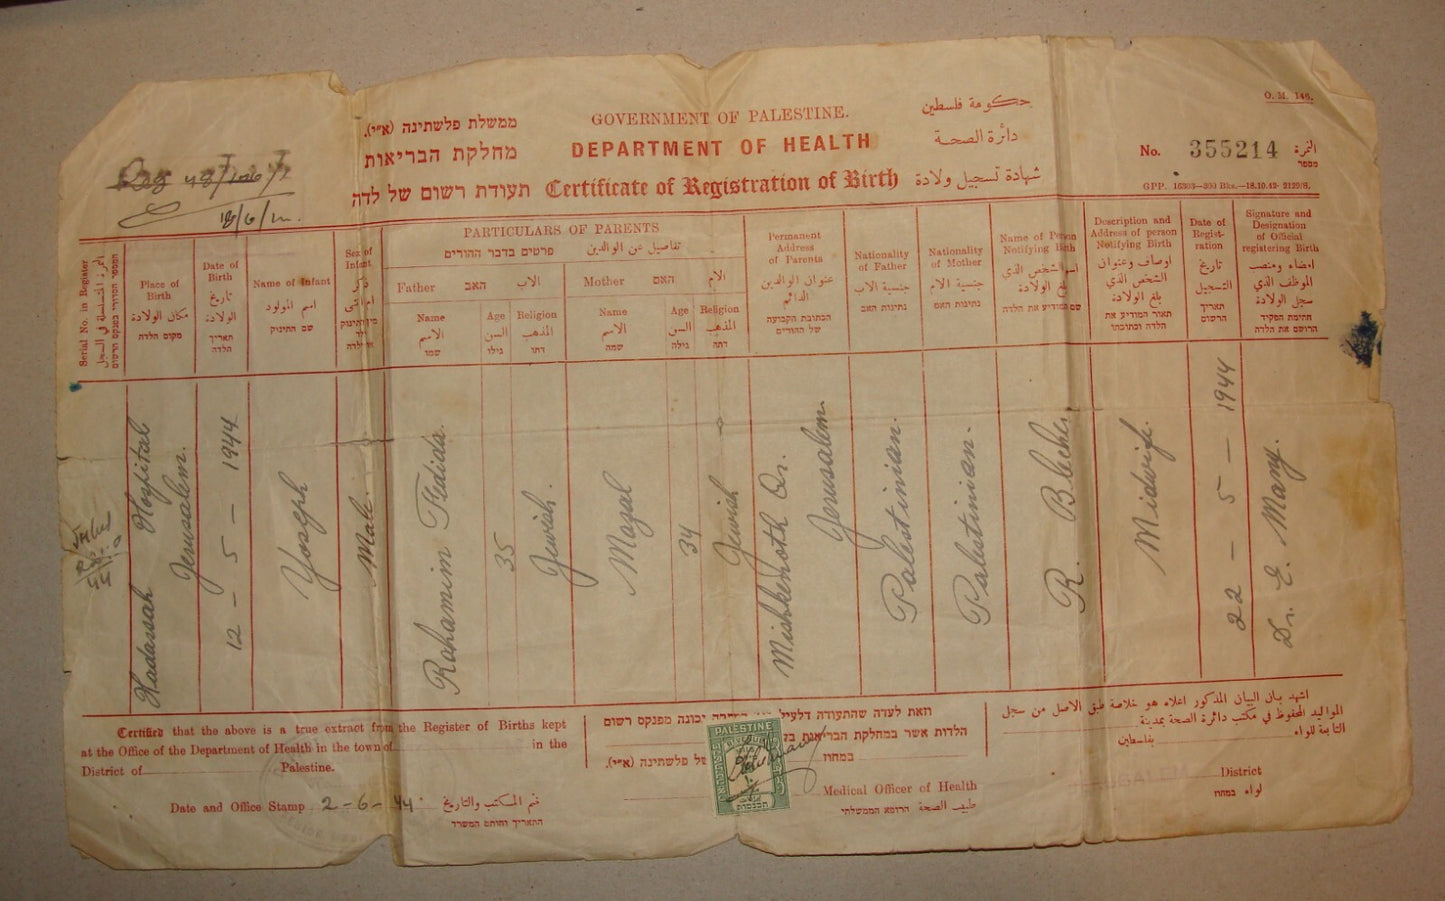 O. M. 146.
ממשלת פלשתינה (א״י). GOVERNMENT OF PALESTINE. حكومة فلسطين
מחלקת הבריאות DEPARTMENT OF HEALTH دائرة الصحة
תעודת רשום של לדה Certificate of Registration of Birth شهادة تسجيل ولادة
No. 355214 النمرة:
מספר
GPP. 16303—300 Bks.—18.10.42- 2129/8.
PARTICULARS OF PARENTS
פרטים בדבר ההורים تفاصيل عن الوالدين
Father האב الاب
Mother האם الام
Serial No. in Register
Place of Birth
مكان الولادة
מקום הלדה
Date of Birth
تاريخ الولادة
תאריך הלדה
Name of Infant
اسم المولود
שם התינוק
Sex of Infant
Name
الاسم
שמו
Age
السن
גילו
Religion
المذهب
דתו
Name
الاسم
שמה
Age
السن
גילה
Religion
المذهب
דתה
Permanent Address of Parents
عنوان الوالدين الدائم
הכתובת הקבועה של ההורים
Nationality of Father
جنسية الاب
נתינות האב
Nationality of Mother
جنسية الام
נתינות האם
Name of Person Notifying Birth
اسم الشخص الذي بلغ الولادة
שם המודיע את הלדה
Description and Address of person Notifying Birth
اوصاف وعنوان الشخص الذي بلغ الولادة
תאור המודיע את הלדה וכתובתו
Date of Registration
تاريخ التسجيل
תאריך הרשום
Signature and Designation of Official registering Birth
امضاء ومنصب الموظف الذي سجل الولادة
חתימת הפקיד הרושם את הלדה
Hadassah Hospital
Jerusalem.
12 - 5 - 1944
Yoseph
Male.
Rahamim Fedida.
35
Jewish.
Mazal
34
Jewish
Mishkenoth Qr.
Jerusalem.
Palestinian.
Palestinian.
R.
Midwife.
22 - 5 - 1944
Dr. E. Many.
Certified that the above is a true extract from the Register of Births kept
at the Office of the Department of Health in the town of in the
District of Palestine.
Date and Office Stamp 2-6-44 ختم المكتب والتاريخ
התאריך וחותם המשרד
וזאת לעדה שהתעודה דלעיל יכונה מפנקס רשום
הלדות אשר במחלקת הבריאות
במחוז של פלשתינה (א״י).
PALESTINE
Medical Officer of Health
طبيب الصحة הרופא הממשלתי
اشهد بان البيان المذكور اعلاه هو خلاصة طبق الاصل من سجل
المواليد المحفوظ في مكتب دائرة الصحة بمدينة
التابعة للواء بفلسطين
JERUSALEM District
لواء במחוז